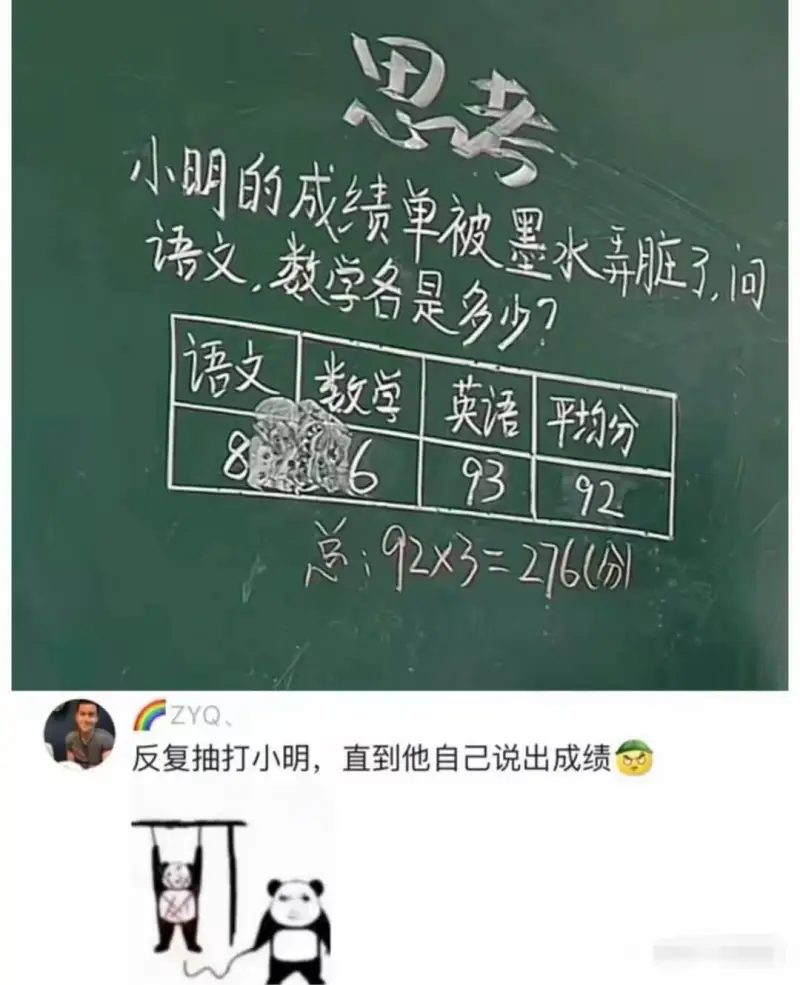 思考
小明的成绩单被墨水弄脏了,问
语文,数学各是多少?
语文 数学 英语 平均分
8 6 93 92
总:92×3=276(分)
🌈ZYQ、
反复抽打小明，直到他自己说出成绩